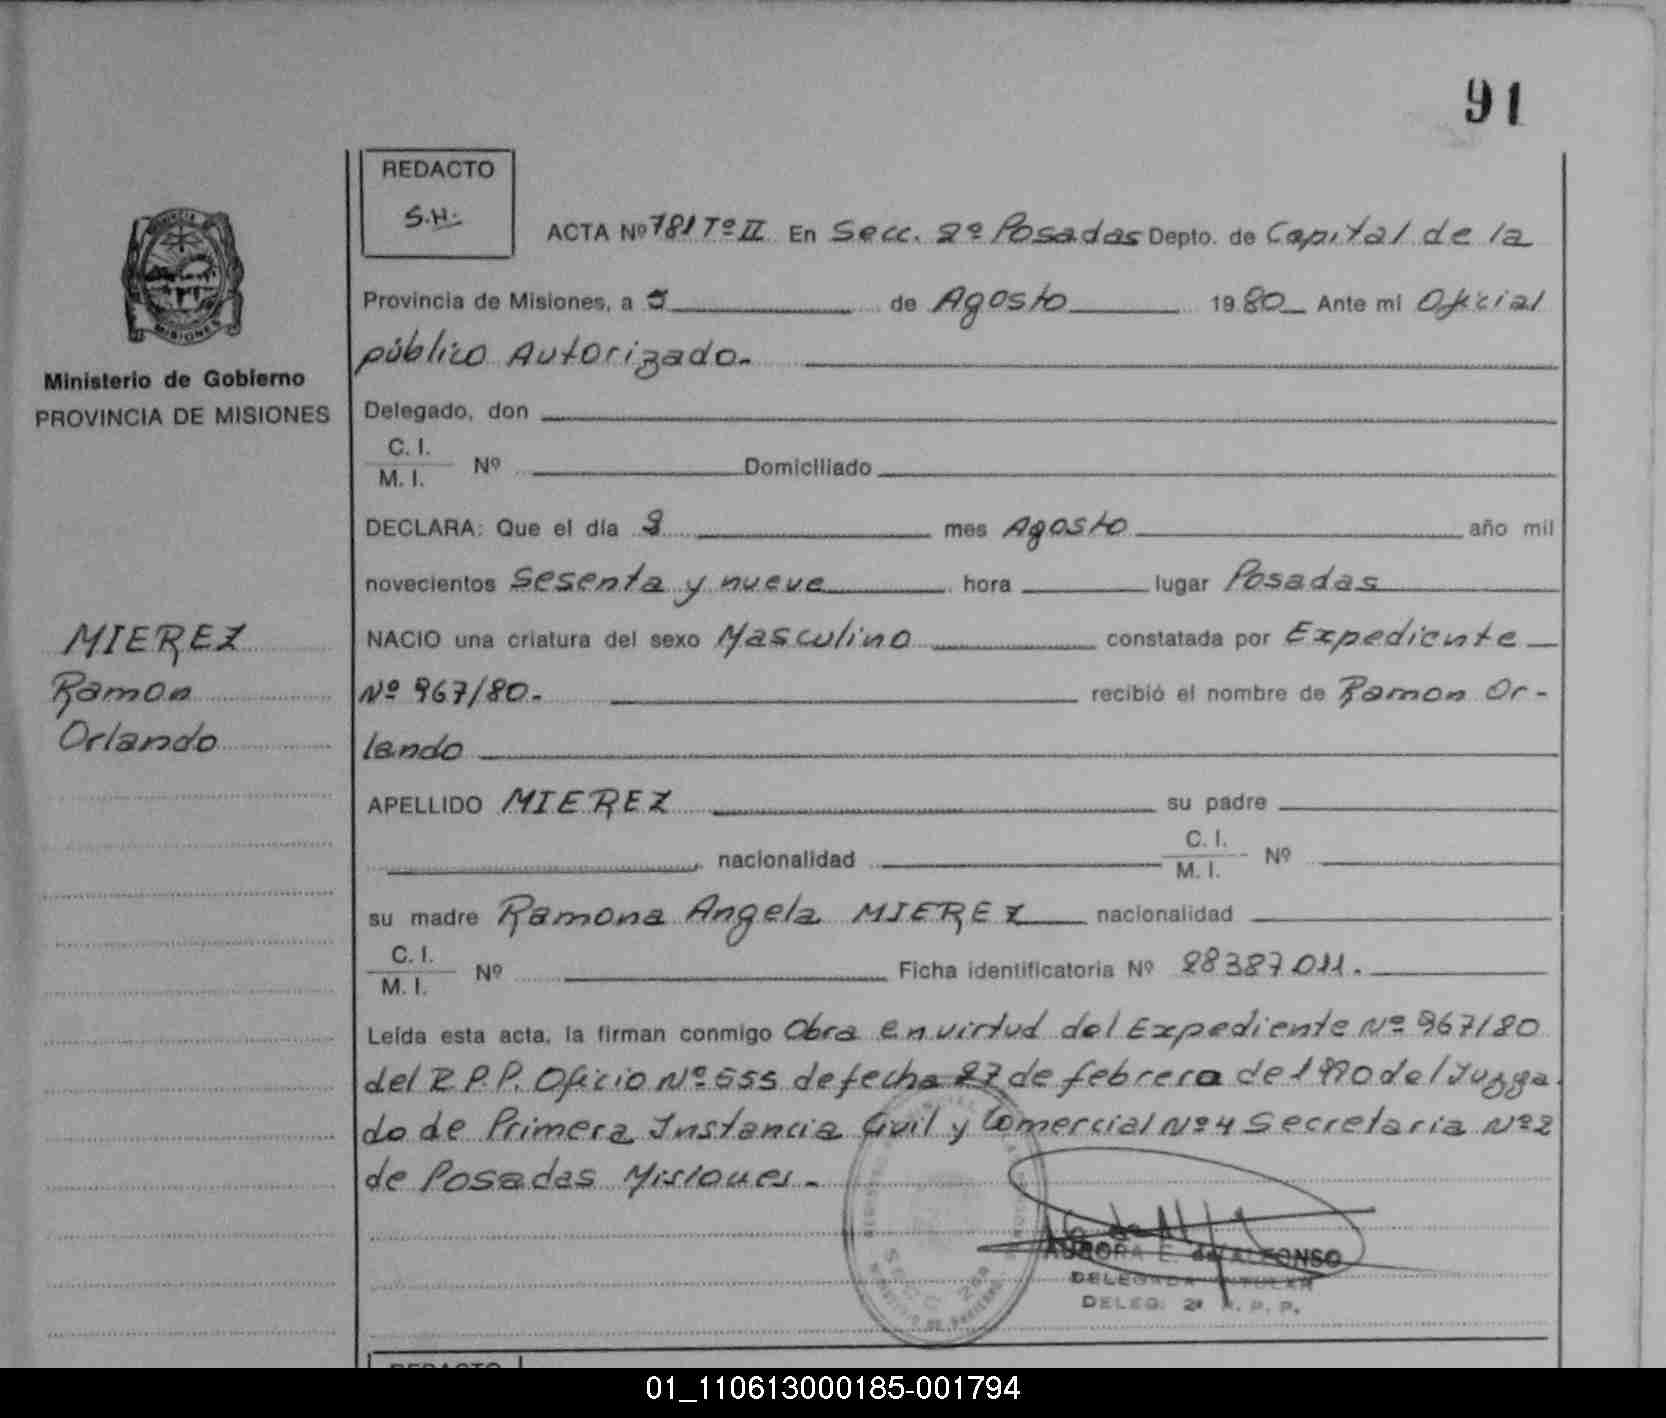 91
REDACTO
S.H.
ACTA Nº 781 Tº II En Secc. 2º Posadas Depto. de Capital de la
Provincia de Misiones, a 5 de Agosto 1980 Ante mi Oficial
público Autorizado.
Ministerio de Gobierno
PROVINCIA DE MISIONES
Delegado, don
C. I.
M. I. Nº Domiciliado
DECLARA: Que el día mes Agosto año mil
novecientos Sesenta y nueve hora lugar Posadas
MIEREZ
Ramon
Orlando
NACIO una criatura del sexo Masculino constatada por Expediente
Nº 967/80.- recibió el nombre de Ramon Or-
lando
APELLIDO MIEREZ su padre
nacionalidad C. I.
M. I. Nº
su madre Ramona Angela MIEREZ nacionalidad
C. I.
M. I. Nº Ficha identificatoria Nº 28387011.
Leída esta acta, la firman conmigo Obra en virtud del Expediente Nº 967/80
del R.P.P. Oficio Nº 555 de fecha 27 de febrero de del Juzga
do de Primera Instancia Civil y Comercial Nº 4 Secretaria Nº 2
de Posadas Misiones.
AURORA E. de ALFONSO
DELEGADA TITULAR
DELEG. 2ª R. P. P.
REDACTO
01_110613000185-001794